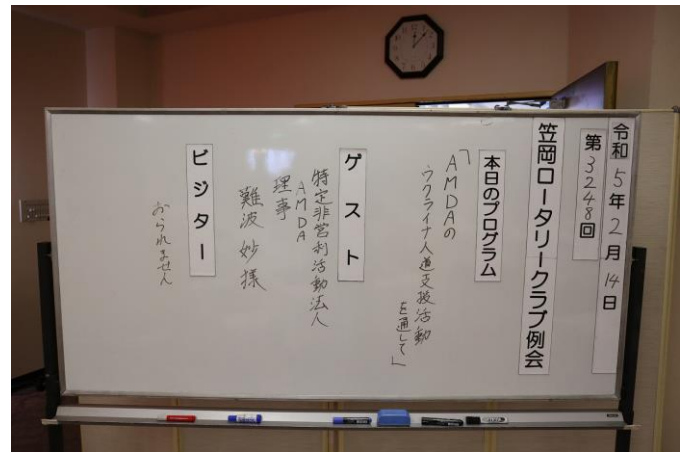 令和5年2月14日
第3248回
笠岡ロータリークラブ例会
本日のプログラム
「AMDAの
ウクライナ人道支援活動
を通して」
ゲスト
特定非営利活動法人
AMDA
理事
難波妙様
ビジター
おられません